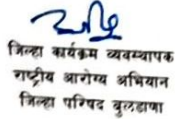 जिल्हा कार्यक्रम व्यवस्थापक
राष्ट्रीय आरोग्य अभियान
जिल्हा परिषद बुलडाणा